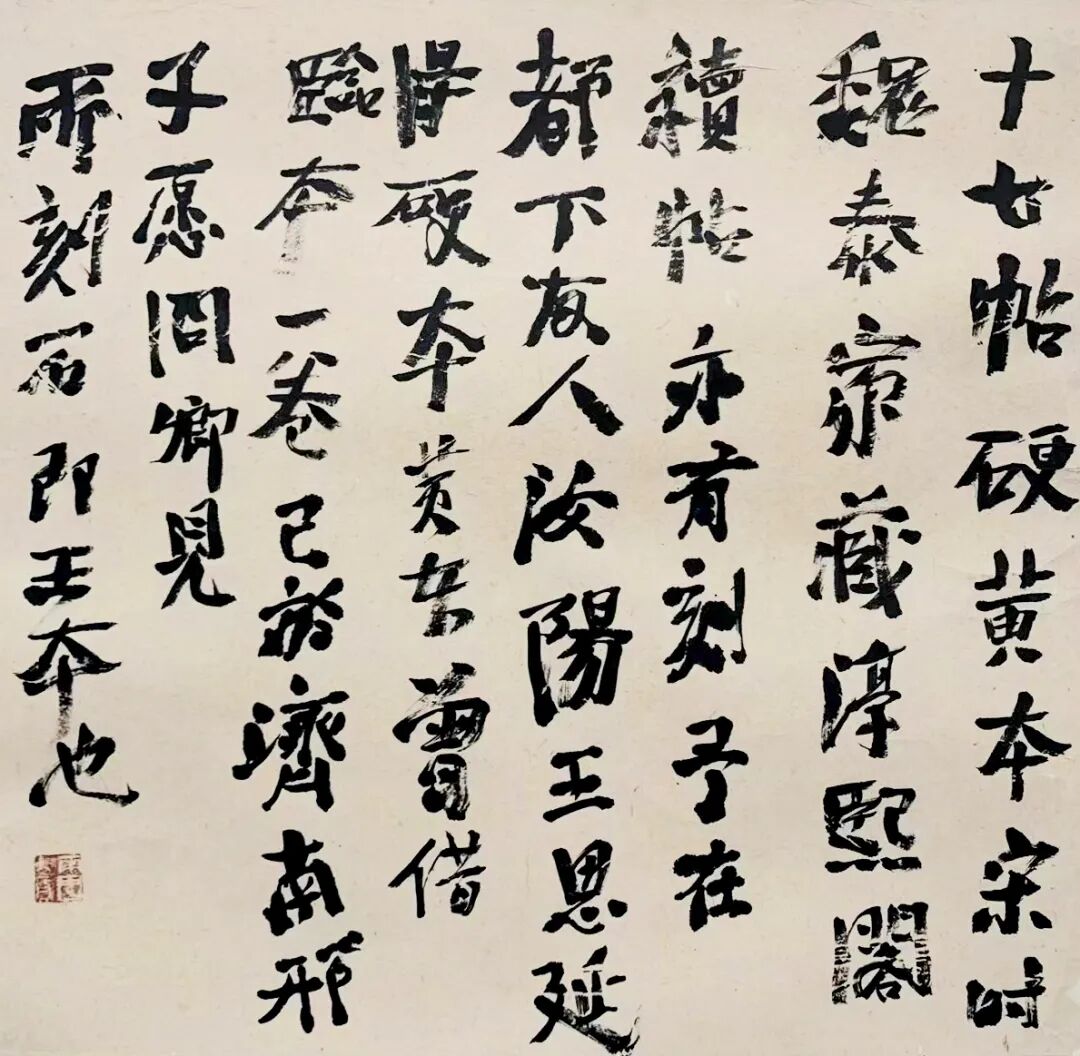 十七帖硬黄本宋时
魏泰家藏淳熙閣
續帖亦有刻予在
都下友人汝陽王思延
得硬本黄曾借
臨本一卷已於濟南邢
子愿囧卿見
所刻石即王本也